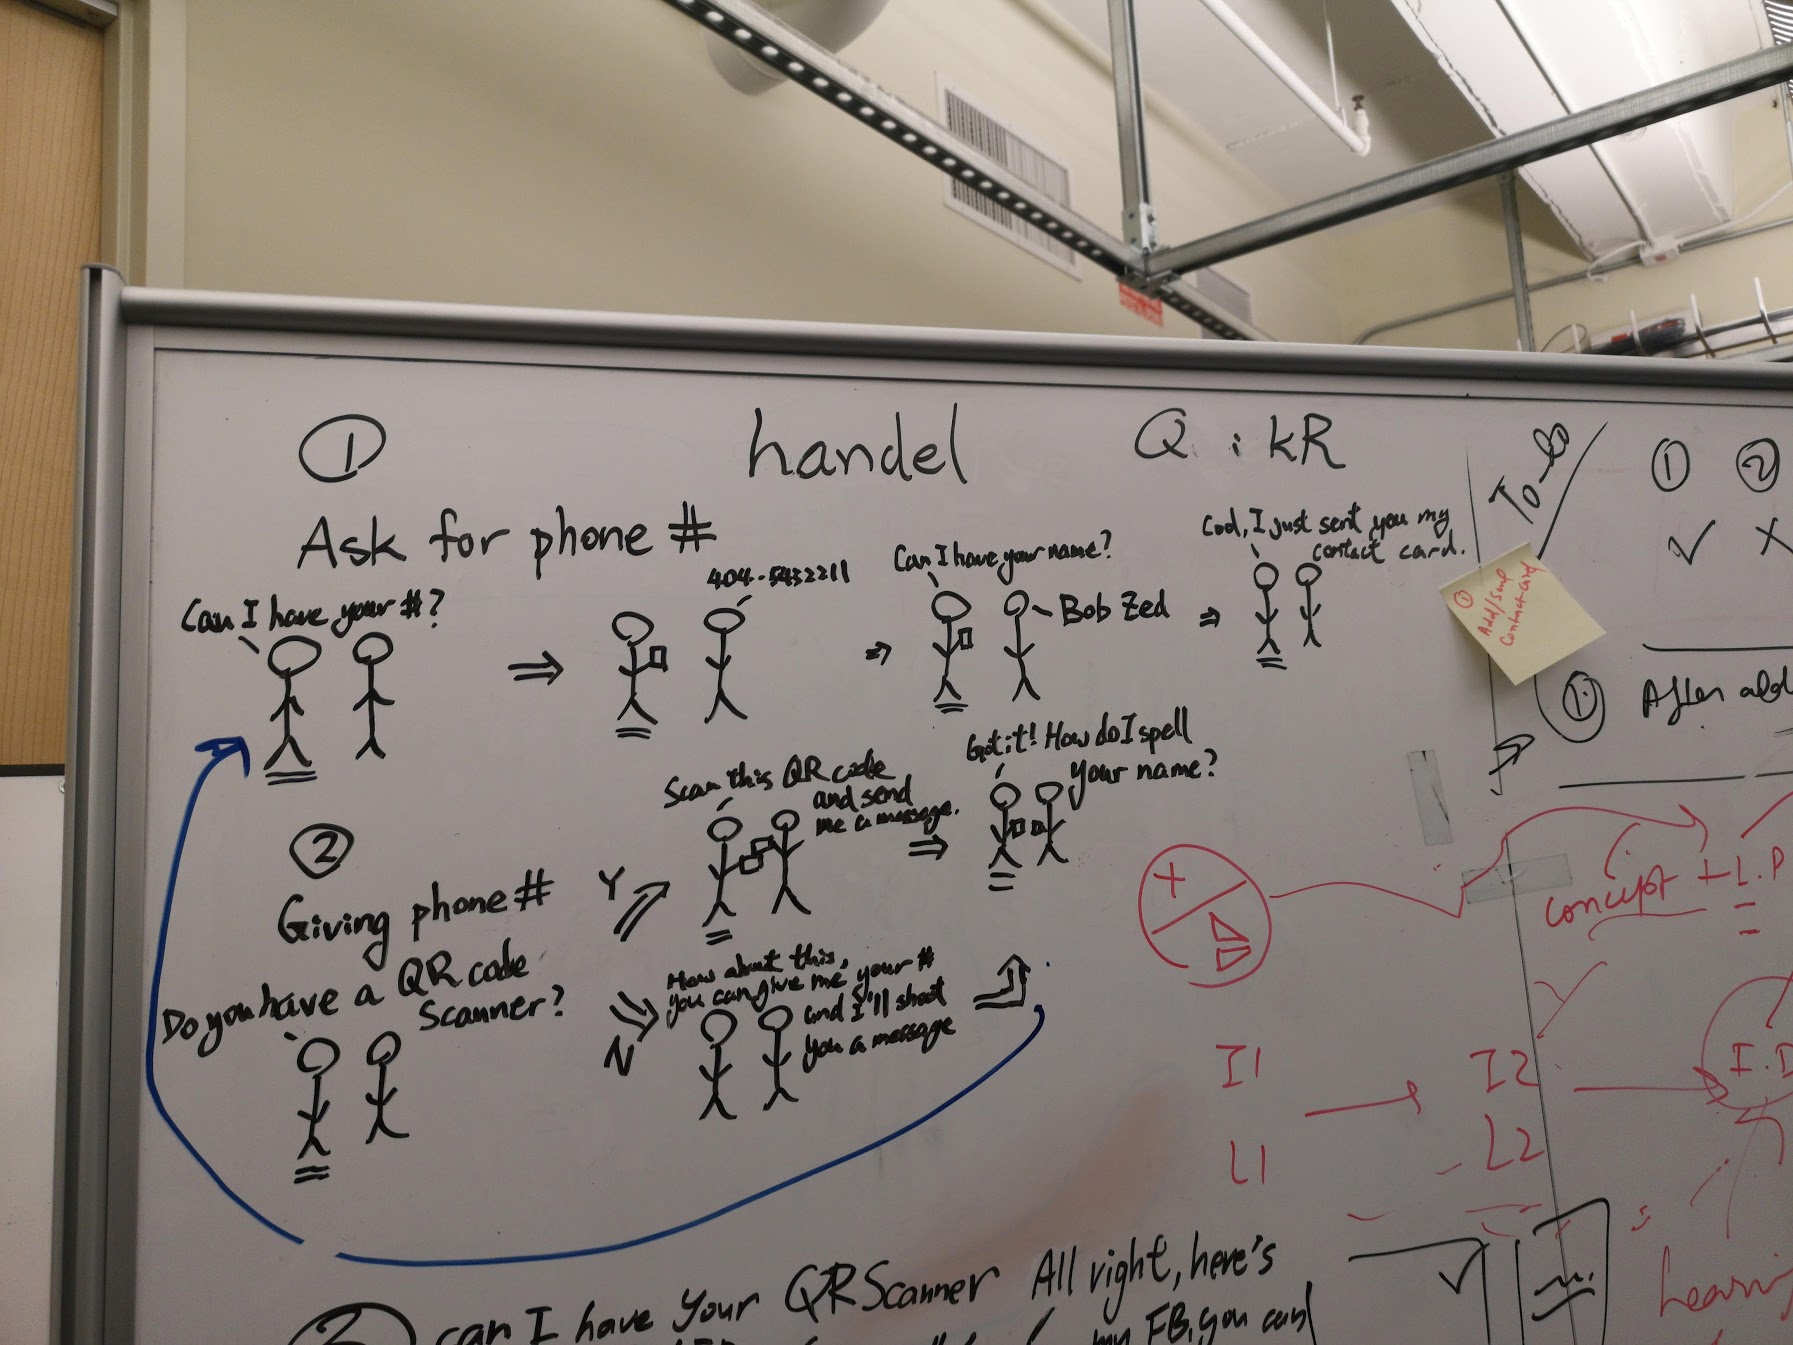 ①
handel
Q : kR
Ask for phone #
Can I have your #?
404-5432211
Can I have your name?
Bob Zed
Cool, I just sent you my
contact card.
②
Giving phone #
Do you have a QR code
Scanner?
Y
Scan this QR code
and send
me a message.
Got it! How do I spell
your name?
N
How about this,
you can give me your #
and I'll shoot
you a message
can I have your QR Scanner
All right, here's
my FB, you can
To-do
① ②
✓ X
①
Add/send
Contact-card
① After add
+
concept + I.P
I1
I2
I.D
L1
L2